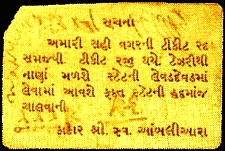 સુચના
અમારી સહી વગરની ટીકીટ રદ
સમજવી. ટીકીટ રજી થયે ટેઝરીથી
નાણાં મળશે સ્ટેટની લેવડદેવડમાં
લેવામાં આવશે ફક્ત સ્ટેટની હદમાંજ
ચાલવાની
ઠાકોર શ્રી. સ્વ. આંબલીઆરા